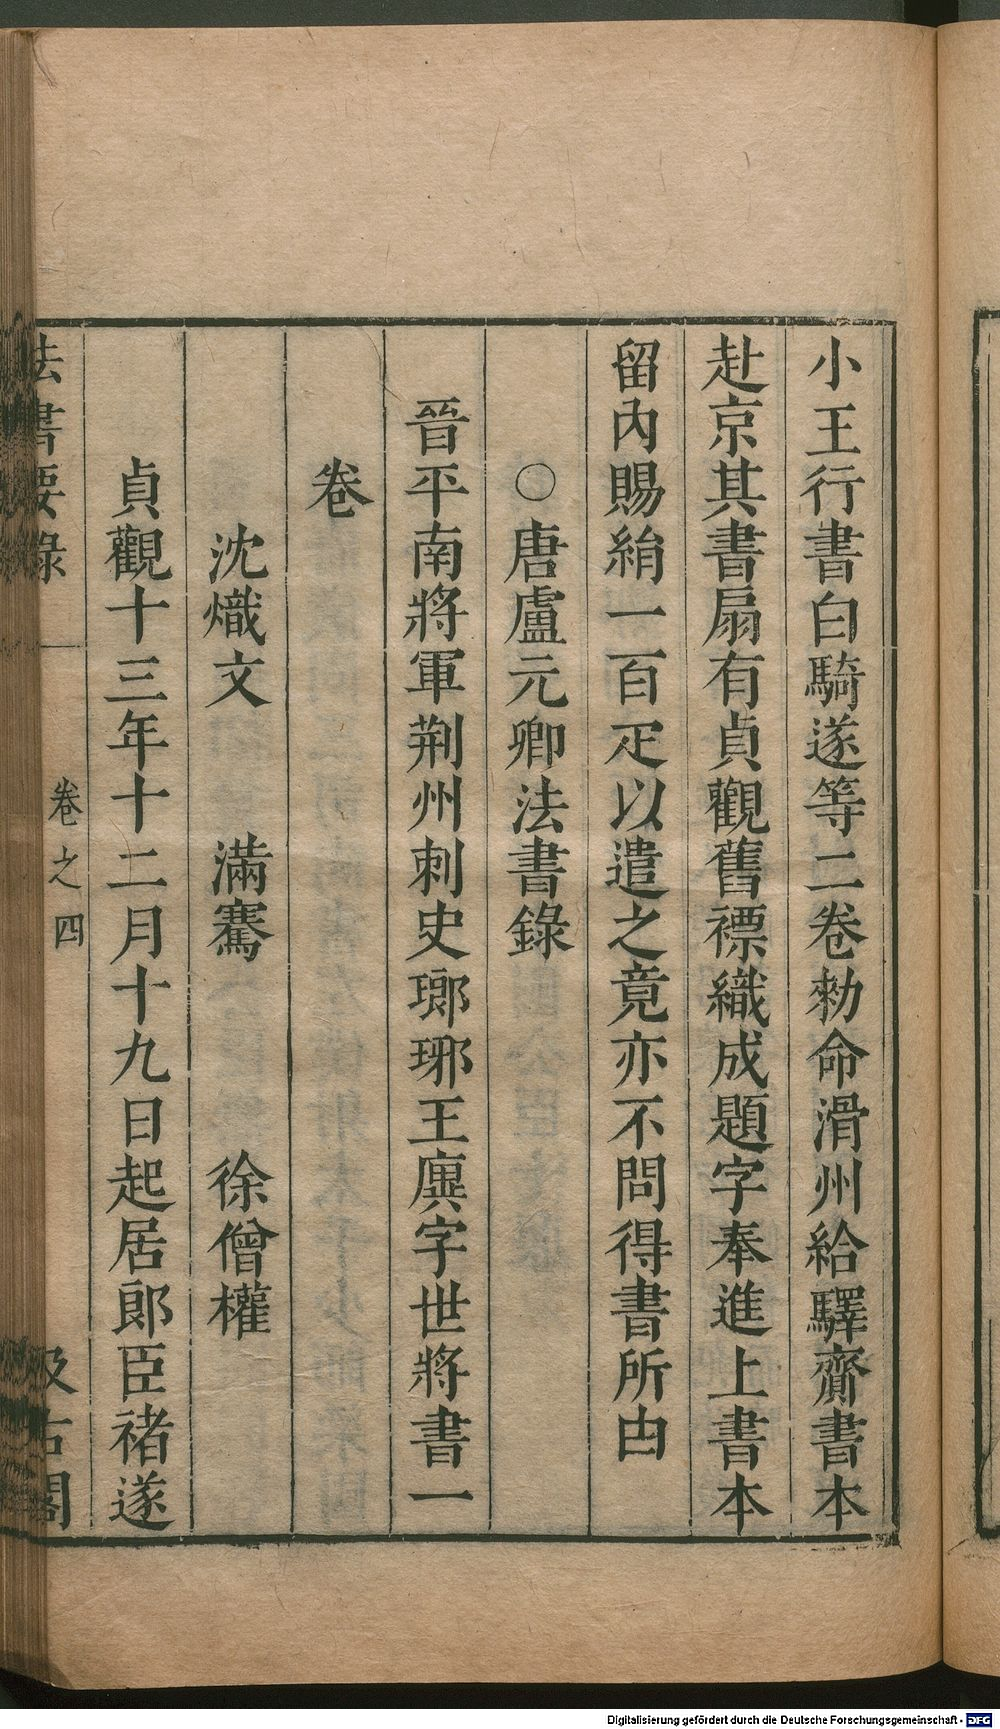 小王行書白騎遂等二卷勑命滑州給驛齎書本
赴京其書扇有貞觀舊褾織成題字奉進上書本
留內賜絹一百疋以遣之竟亦不問得書所由
○唐盧元卿法書錄
晉平南將軍荆州刺史瑯琊王廙字世將書一
卷
沈熾文　滿騫　徐僧權
貞觀十三年十二月十九日起居郎臣褚遂
法書要錄　卷之四　汲古閣
Digitalisierung gefördert durch die Deutsche Forschungsgemeinschaft - DFG